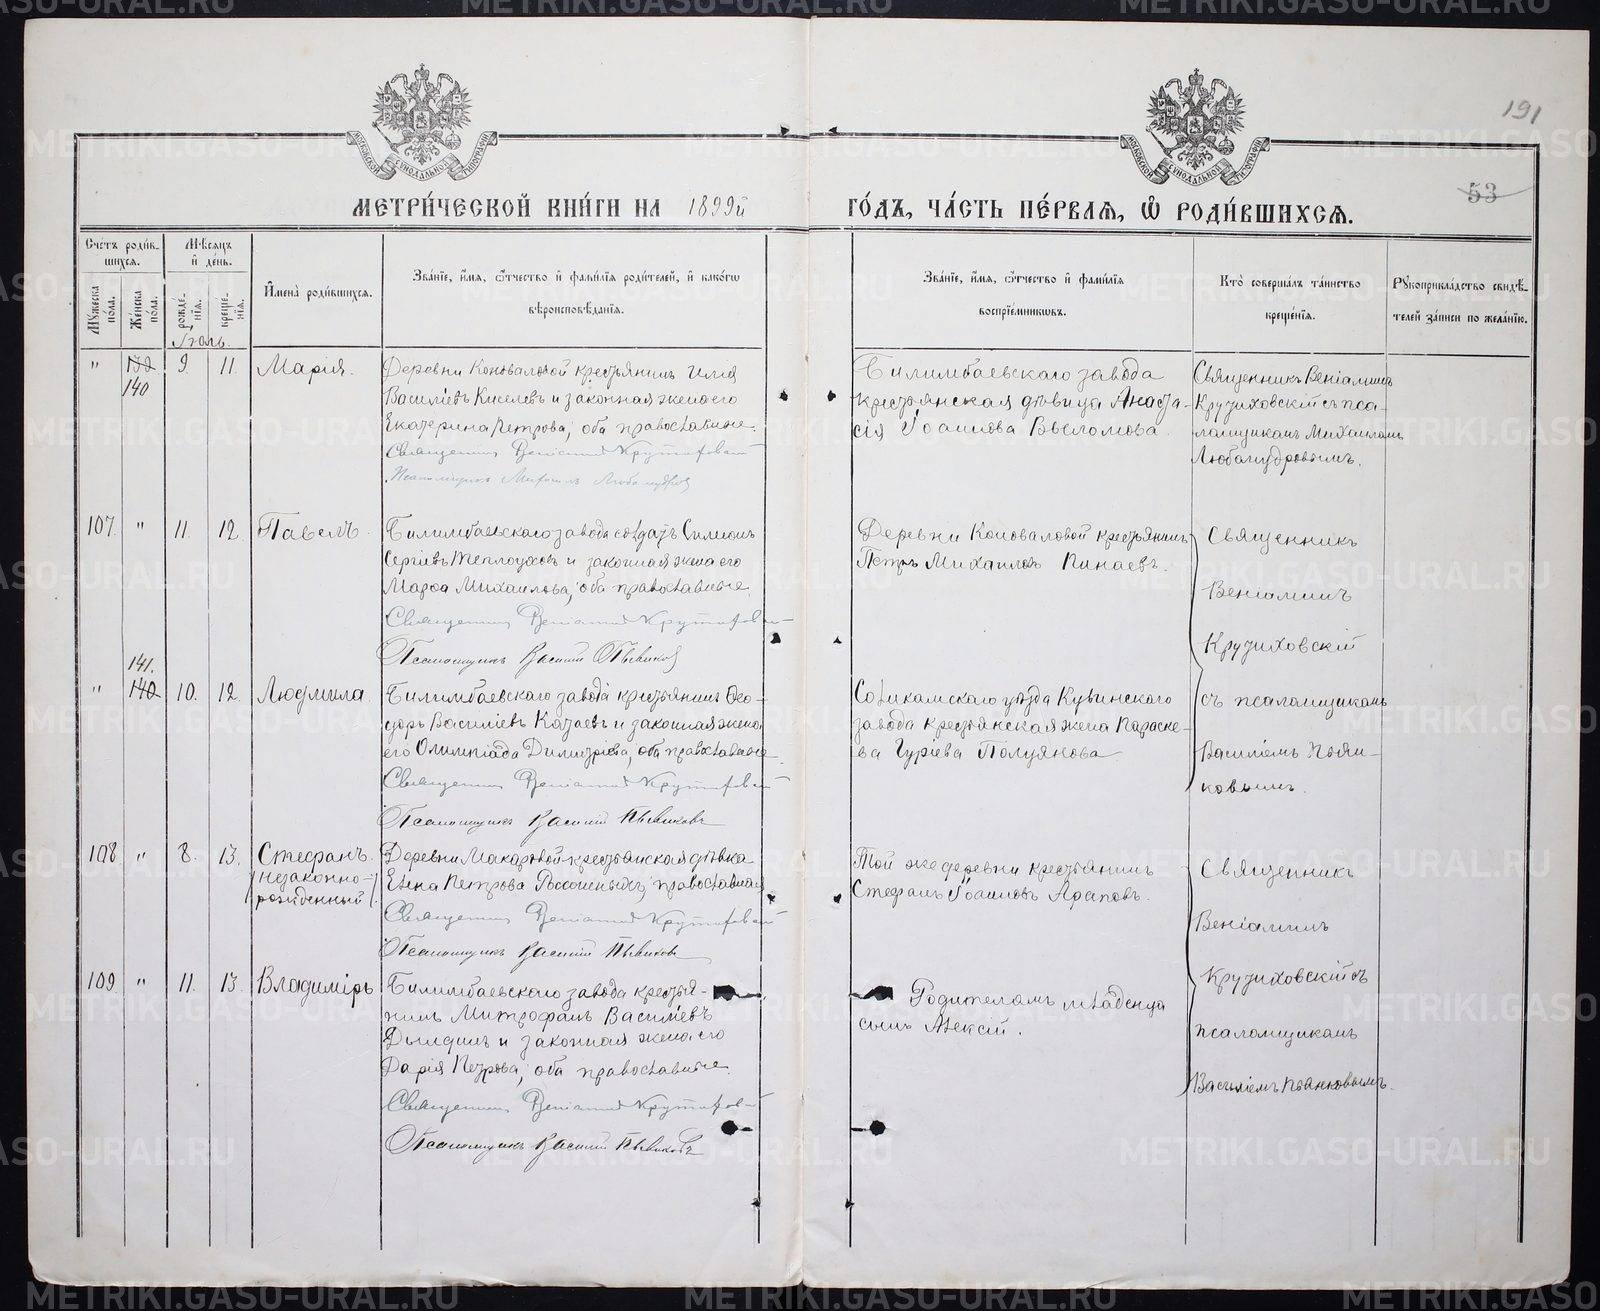 191
53
МОСКОВСКОЙ СУНОДАЛЬНОЙ ТИПОГРАФІИ
МОСКОВСКОЙ СУНОДАЛЬНОЙ ТИПОГРАФІИ
МЕТРИ́ЧЕСКОЙ КНИ́ГИ НА 1899й
ГО́ДЪ, ЧА́СТЬ ПЕ́РВАѦ, Ѡ҆ РОДИ́ВШИХСѦ.
Сче́тъ роди́в-
шихсѧ.
Мꙋ́жеска по́ла.
Же́нска по́ла.
Мѣ́сѧцъ
и҆ де́нь.
рожде́-
нїѧ.
креще́-
нїѧ.
И҆мена̀ роди́вшихсѧ.
Зва́нїе, и҆́мѧ, ѻ҆́тчество и҆ фами́лїѧ роди́телей, и҆ како́гѡ
вѣроисповѣ́данїѧ.
Зва́нїе, и҆́мѧ, ѻ҆́тчество и҆ фами́лїѧ
воспрїе́мникѡвъ.
Кто̀ соверша́лъ та́инство
креще́нїѧ.
Рꙋкоприкла́дство свидѣ́-
телей за́писи по жела́нїю.
Іюль.
" 139 9 11 Марія.
140
Деревни Коноваловой крестьянинъ Илія
Василіевъ Киселевъ и законная жена его
Екатерина Петрова, оба православные.
Священникъ Веніаминъ Крутиховскій
Псаломщикъ Михаилъ Любомудровъ
Билимбаевскаго завода
крестьянская дѣвица Анаста-
сія Іоаннова
Священникъ Веніаминъ
Крутиховскій съ пса-
ломщикомъ Михаиломъ
Любомудровымъ.
107. " 11. 12. Павелъ.
Билимбаевскаго завода солдатъ Симеонъ
Сергіевъ Теплоуховъ и законная жена его
Марѳа Михаилова, оба православные.
Священникъ Веніаминъ Крутиховскій
Псаломщикъ Василій Пьянковъ
Деревни Коноваловой крестьянинъ
Петръ Михаиловъ Пинаевъ.
Священникъ
Веніаминъ
Крутиховскій
съ псаломщикомъ
Василіемъ Пьян-
ковымъ.
141.
" 140 10. 12. Людмила
Билимбаевскаго завода крестьянинъ Ѳео-
доръ Василіевъ и законная жена
его Олимпіада Димитріева, оба православные.
Священникъ Веніаминъ Крутиховскій
Псаломщикъ Василій Пьянковъ
Соликамскаго уѣзда Кувинскаго
завода крестьянская жена Параске-
ва Гуріева Полуянова.
108. " 8. 13. Стефанъ.
(незаконно-
рожденный).
Деревни Макаровой крестьянская дѣвка
Елена Петрова православная
Священникъ Веніаминъ Крутиховскій
Псаломщикъ Василій Пьянковъ
Той же деревни крестьянинъ
Стефанъ Іоанновъ Араповъ.
Священникъ
Веніаминъ
Крутиховскій съ
псаломщикомъ
Василіемъ Пьянковымъ.
109. " 11. 13. Владиміръ
Билимбаевскаго завода крестья-
нинъ Митрофанъ Василіевъ
Дылдинъ и законная жена его
Дарія Петрова, оба православные.
Священникъ Веніаминъ Крутиховскій
Псаломщикъ Василій Пьянковъ
Родителямъ младенца
сынъ Алексій.
METRIKI.GASO-URAL.RU